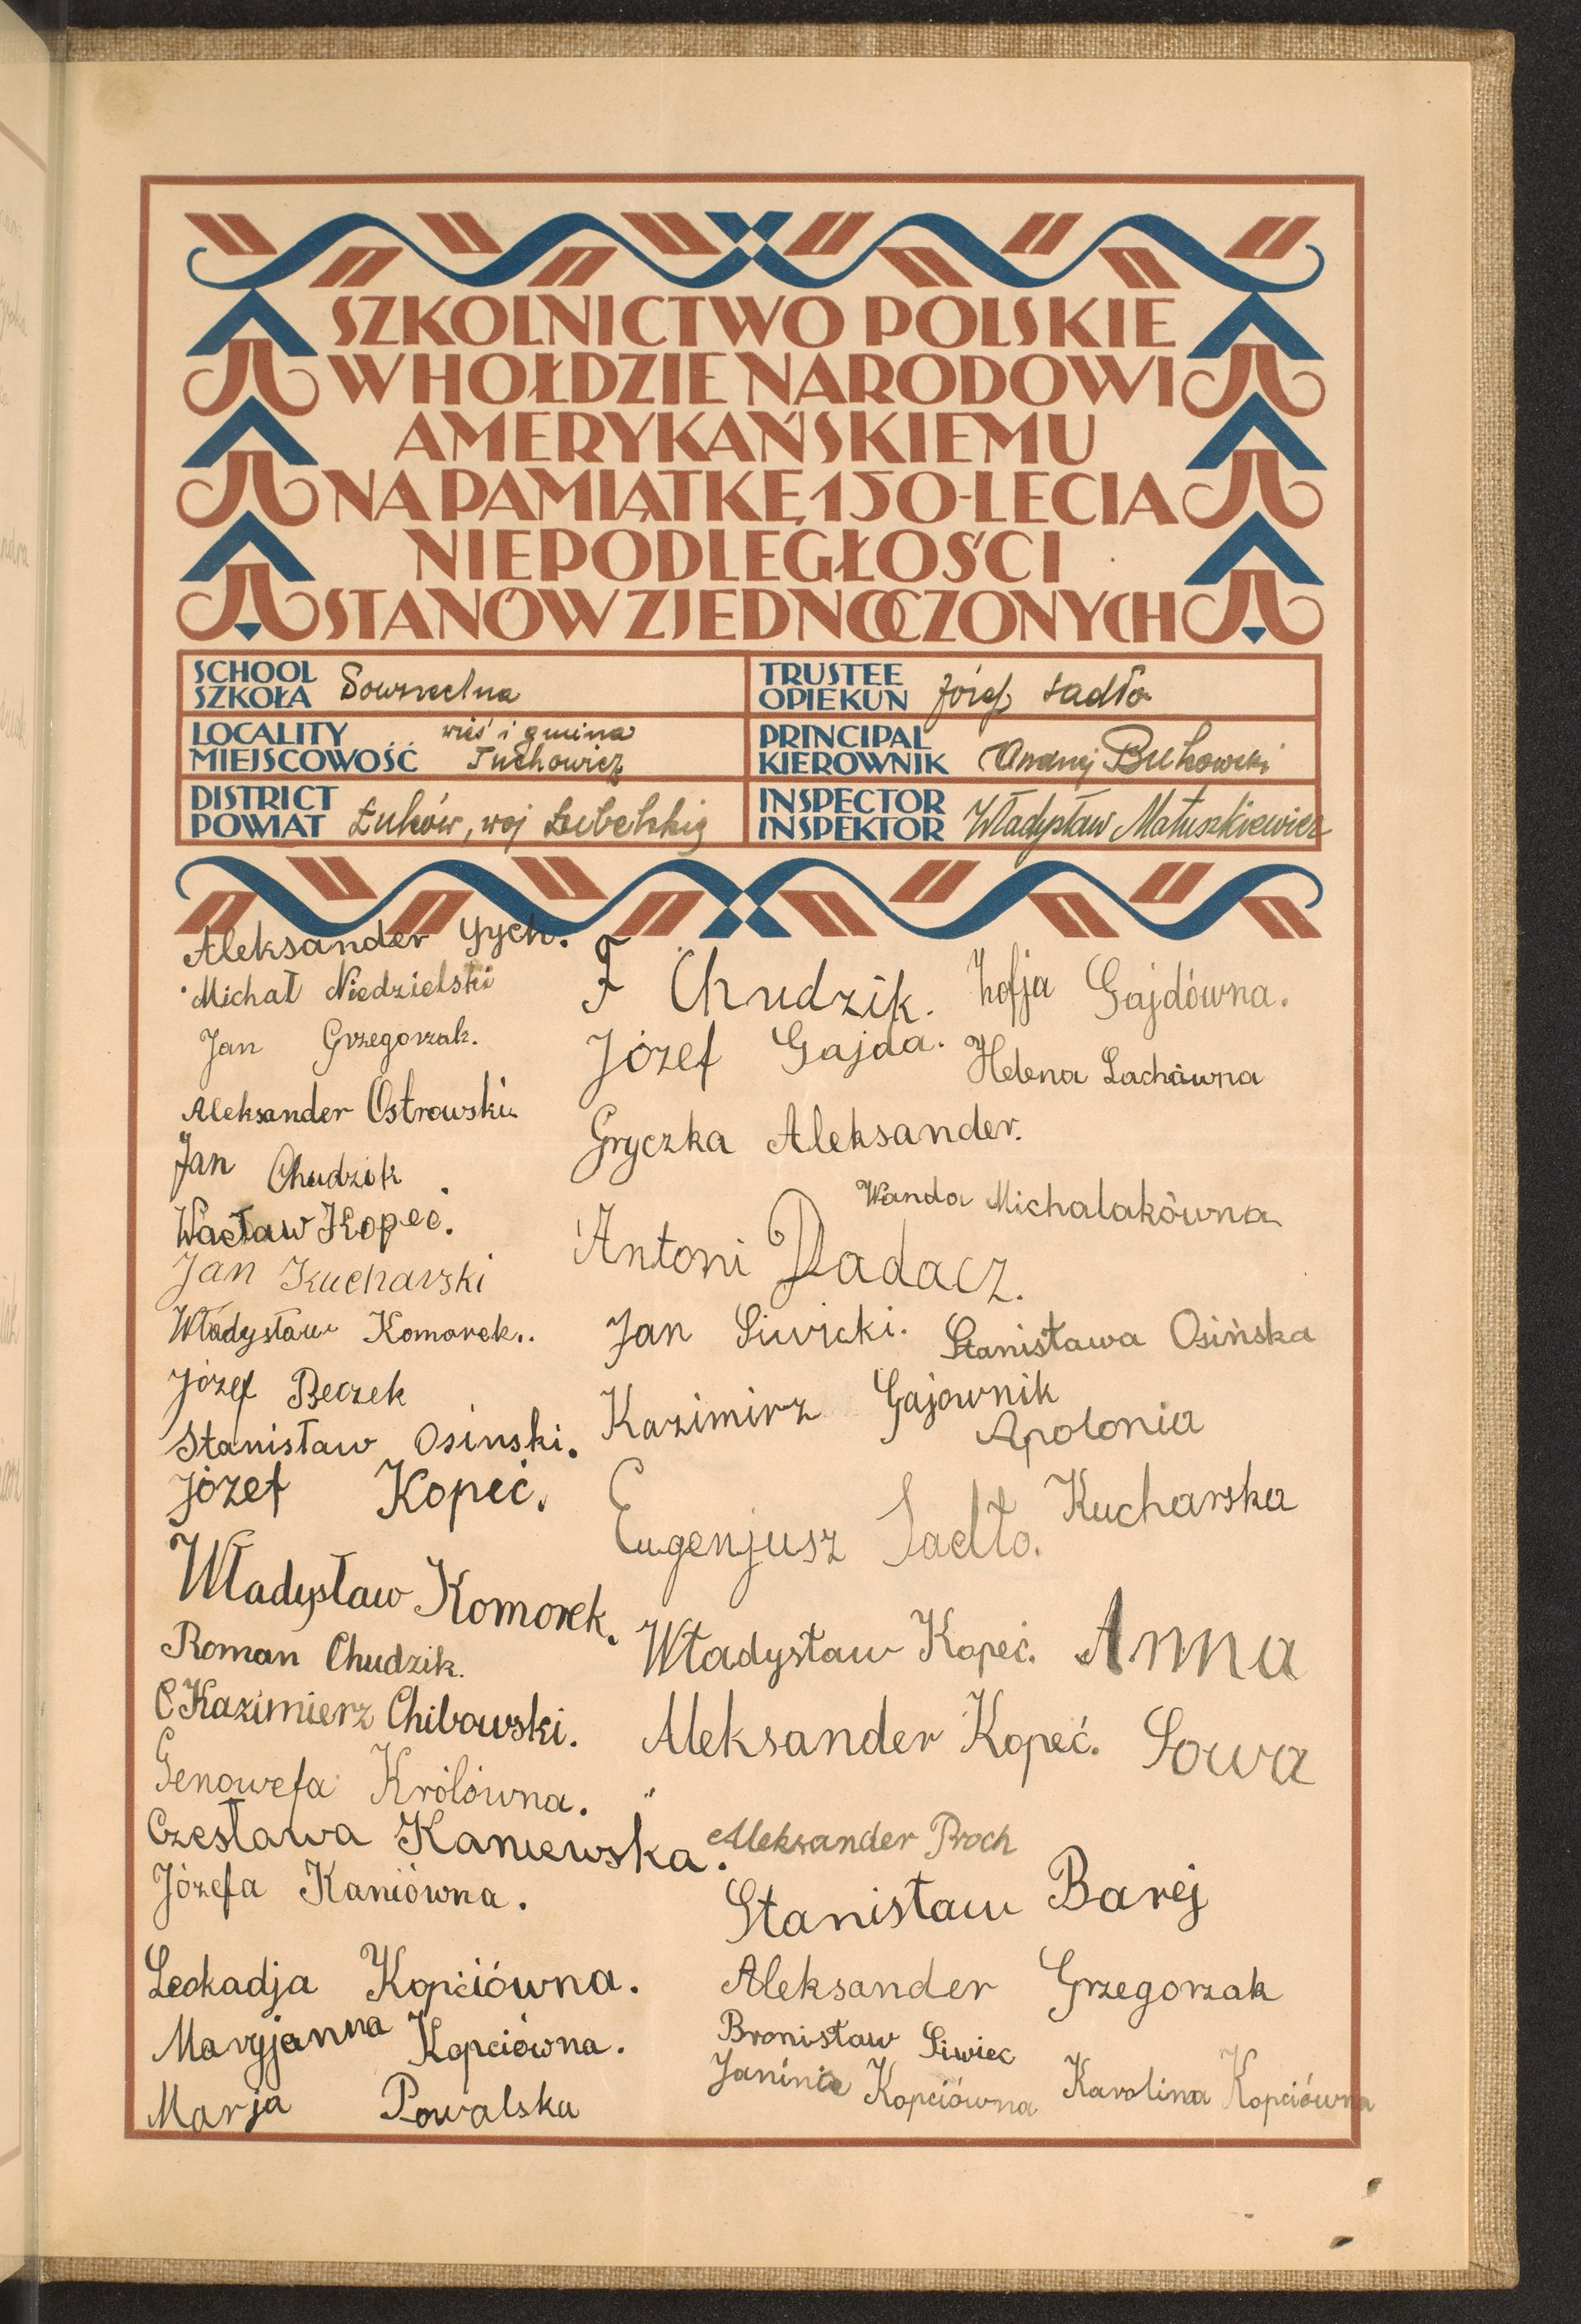 SZKOLNICTWO POLSKIE
W HOŁDZIE NARODOWI
AMERYKAŃSKIEMU
NA PAMIĄTKĘ 150-LECIA
NIEPODLEGŁOŚCI
STANÓW ZJEDNOCZONYCH
SCHOOL
SZKOŁA Powszechna
TRUSTEE
OPIEKUN Józef Sadło
LOCALITY
MIEJSCOWOŚĆ wieś i gmina
Tuchowicz
PRINCIPAL
KIEROWNIK Andrzej Bukowski
DISTRICT
POWIAT Łuków, woj Lubelskie
INSPECTOR
INSPEKTOR Władysław Matuszkiewicz
Aleksander
Michał Niedzielski
Jan Grzegorzak.
Aleksander Ostrowski
Jan Chudzik
Wacław Kopeć.
Jan Kucharski
Władysław Komorek..
Józef Beczek
Stanisław Osinski.
Józef Kopeć.
Władysław Komorek.
Roman Chudzik.
Kazimierz Chibowski.
Genowefa Królówna.
Czesława Kaniewska.
Józefa Kaniówna.
Leokadja Kopciówna.
Maryjanna Kopciówna.
Marja Powalska
F Chudzik.
Józef Gajda.
Gryczka Aleksander.
Antoni Dadacz.
Jan Siwicki.
Kazimirz Gajownik
Eugenjusz Sadło.
Władysław Kopeć.
Aleksander Kopeć.
Aleksander Proch
Stanisław Barej
Aleksander Grzegorzak
Bronisław Siwiec
Janina Kopciówna
Zofja Gajdówna.
Helena Lachówna
Wanda Michalakówna
Stanisława Osińska
Apolonia
Kucharska
Anna
Sowa
Karolina Kopciówna